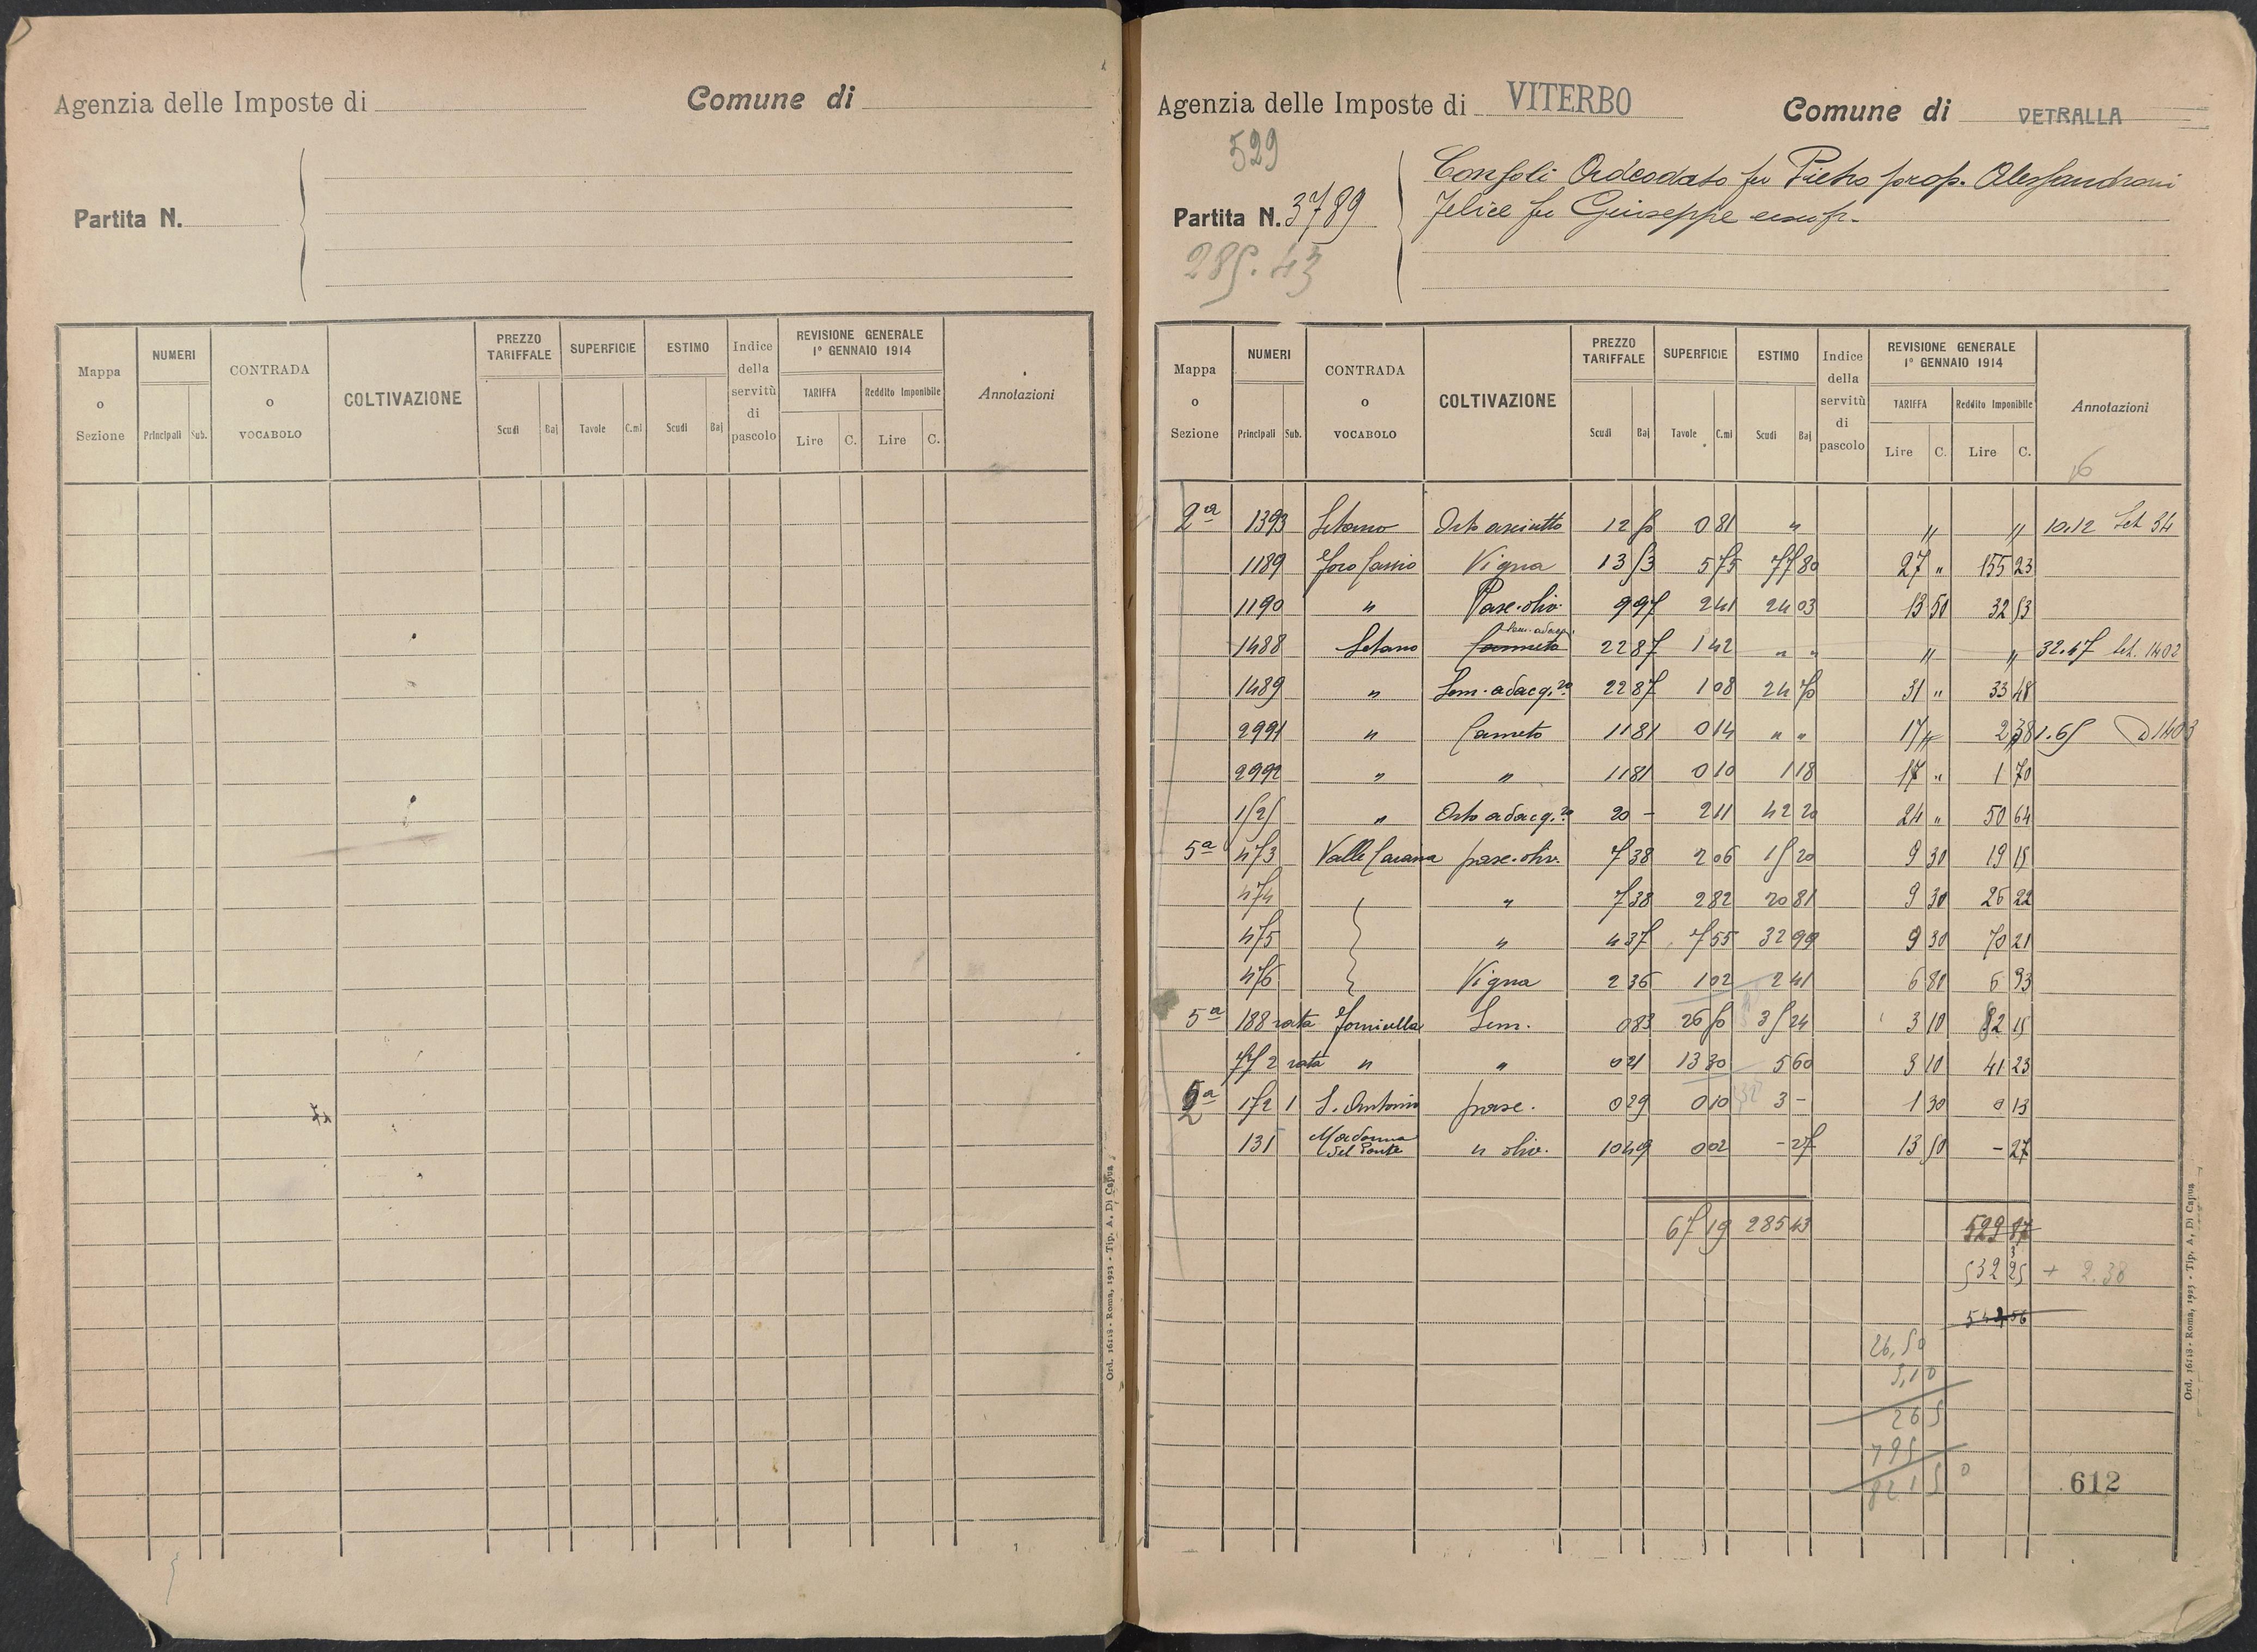 Agenzia delle Imposte di
Comune di
Partita N.
Mappa o Sezione
NUMERI
Principali Sub.
CONTRADA o VOCABOLO
COLTIVAZIONE
PREZZO TARIFFALE
Scudi Baj
SUPERFICIE
Tavole C.mi
ESTIMO
Scudi Baj
Indice della servitù di pascolo
REVISIONE GENERALE 1° GENNAIO 1914
TARIFFA Reddito Imponibile
Lire C. Lire C.
Annotazioni
Ord. 16118 - Roma, 1923 - Tip. A. Di Capua
Agenzia delle Imposte di VITERBO
Comune di VETRALLA
529
Partita N. 3789
285.43
Consoli Adeodato fu Pietro prop. Alessandroni
Felice fu Giuseppe
Mappa o Sezione
NUMERI
Principali Sub.
CONTRADA o VOCABOLO
COLTIVAZIONE
PREZZO TARIFFALE
Scudi Baj
SUPERFICIE
Tavole C.mi
ESTIMO
Scudi Baj
Indice della servitù di pascolo
REVISIONE GENERALE 1° GENNAIO 1914
TARIFFA Reddito Imponibile
Lire C. Lire C.
Annotazioni
2a 1393 Setano Orto asciutto 12 50 0 81 " " " 10.12 Let 34
1189 Foro Cassio Vigna 13 53 5 75 77 80 27 " 155 23
1190 " Pasc. oliv. 9 97 2 41 24 03 13 50 32 53
1488 Setano Canneto Sem. adacq. 22 87 1 42 " " " " 32.47 Let. 1402
1489 " Sem. adacq.to 22 87 1 08 24 70 31 " 33 48
2991 " Canneto 11 81 0 14 " " 17 " 2 38 1.65 1403
2992 " " 11 81 0 10 1 18 17 " 1 70
1525 " Orto adacq.to 20 - 2 11 42 20 24 " 50 64
5a 473 Valle Caiana pasc. oliv. 7 38 2 06 15 20 9 30 19 15
474 " 7 38 2 82 20 81 9 30 26 22
475 " 4 37 7 55 32 99 9 30 70 21
476 Vigna 2 36 1 02 2 41 6 80 6 93
5a 188 rata Fornicella Sem. 0 83 26 50 3 24 3 10 82 15
772 rata " " 0 41 13 30 5 60 3 10 41 23
2a 172 1 S. Antonio pasc. 0 29 0 10 3 - 1 30 0 13
131 Madonna del Ponte " oliv. 10 49 0 02 - 27 13 50 - 27
67 19 285 43 529 87
532 25 + 2.38
542 56
26,50
3,10
265
795
8215 0
612
Ord. 16118 - Roma, 1923 - Tip. A. Di Capua